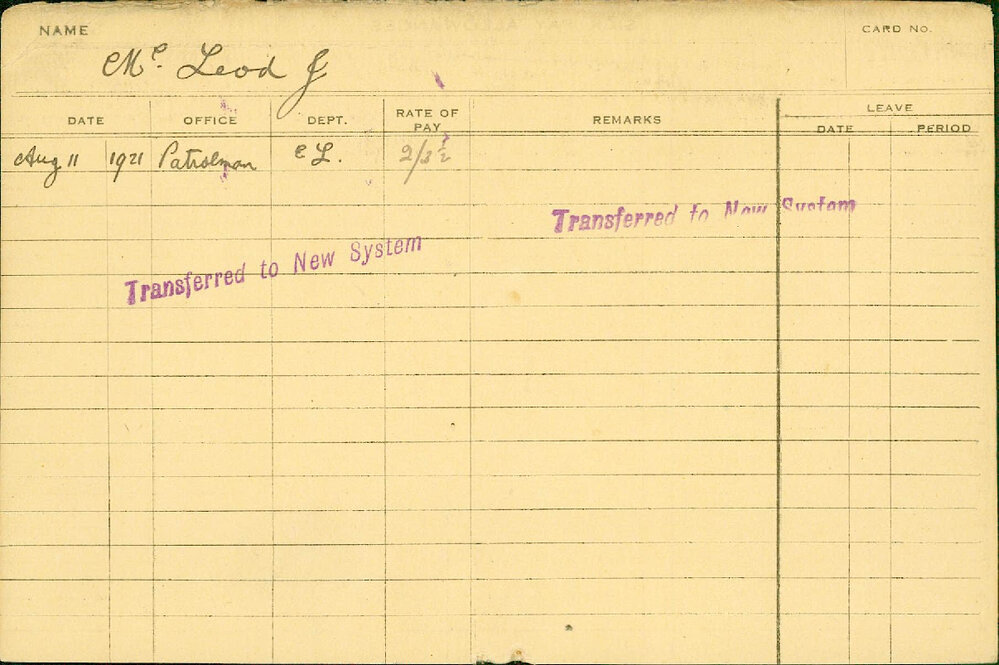 NAME CARD NO.
Mc. Leod J
DATE OFFICE DEPT. RATE OF PAY REMARKS LEAVE
DATE PERIOD
Aug 11 1921 Patrolman E L. 2/3 ½
Transferred to New System
Transferred to New System